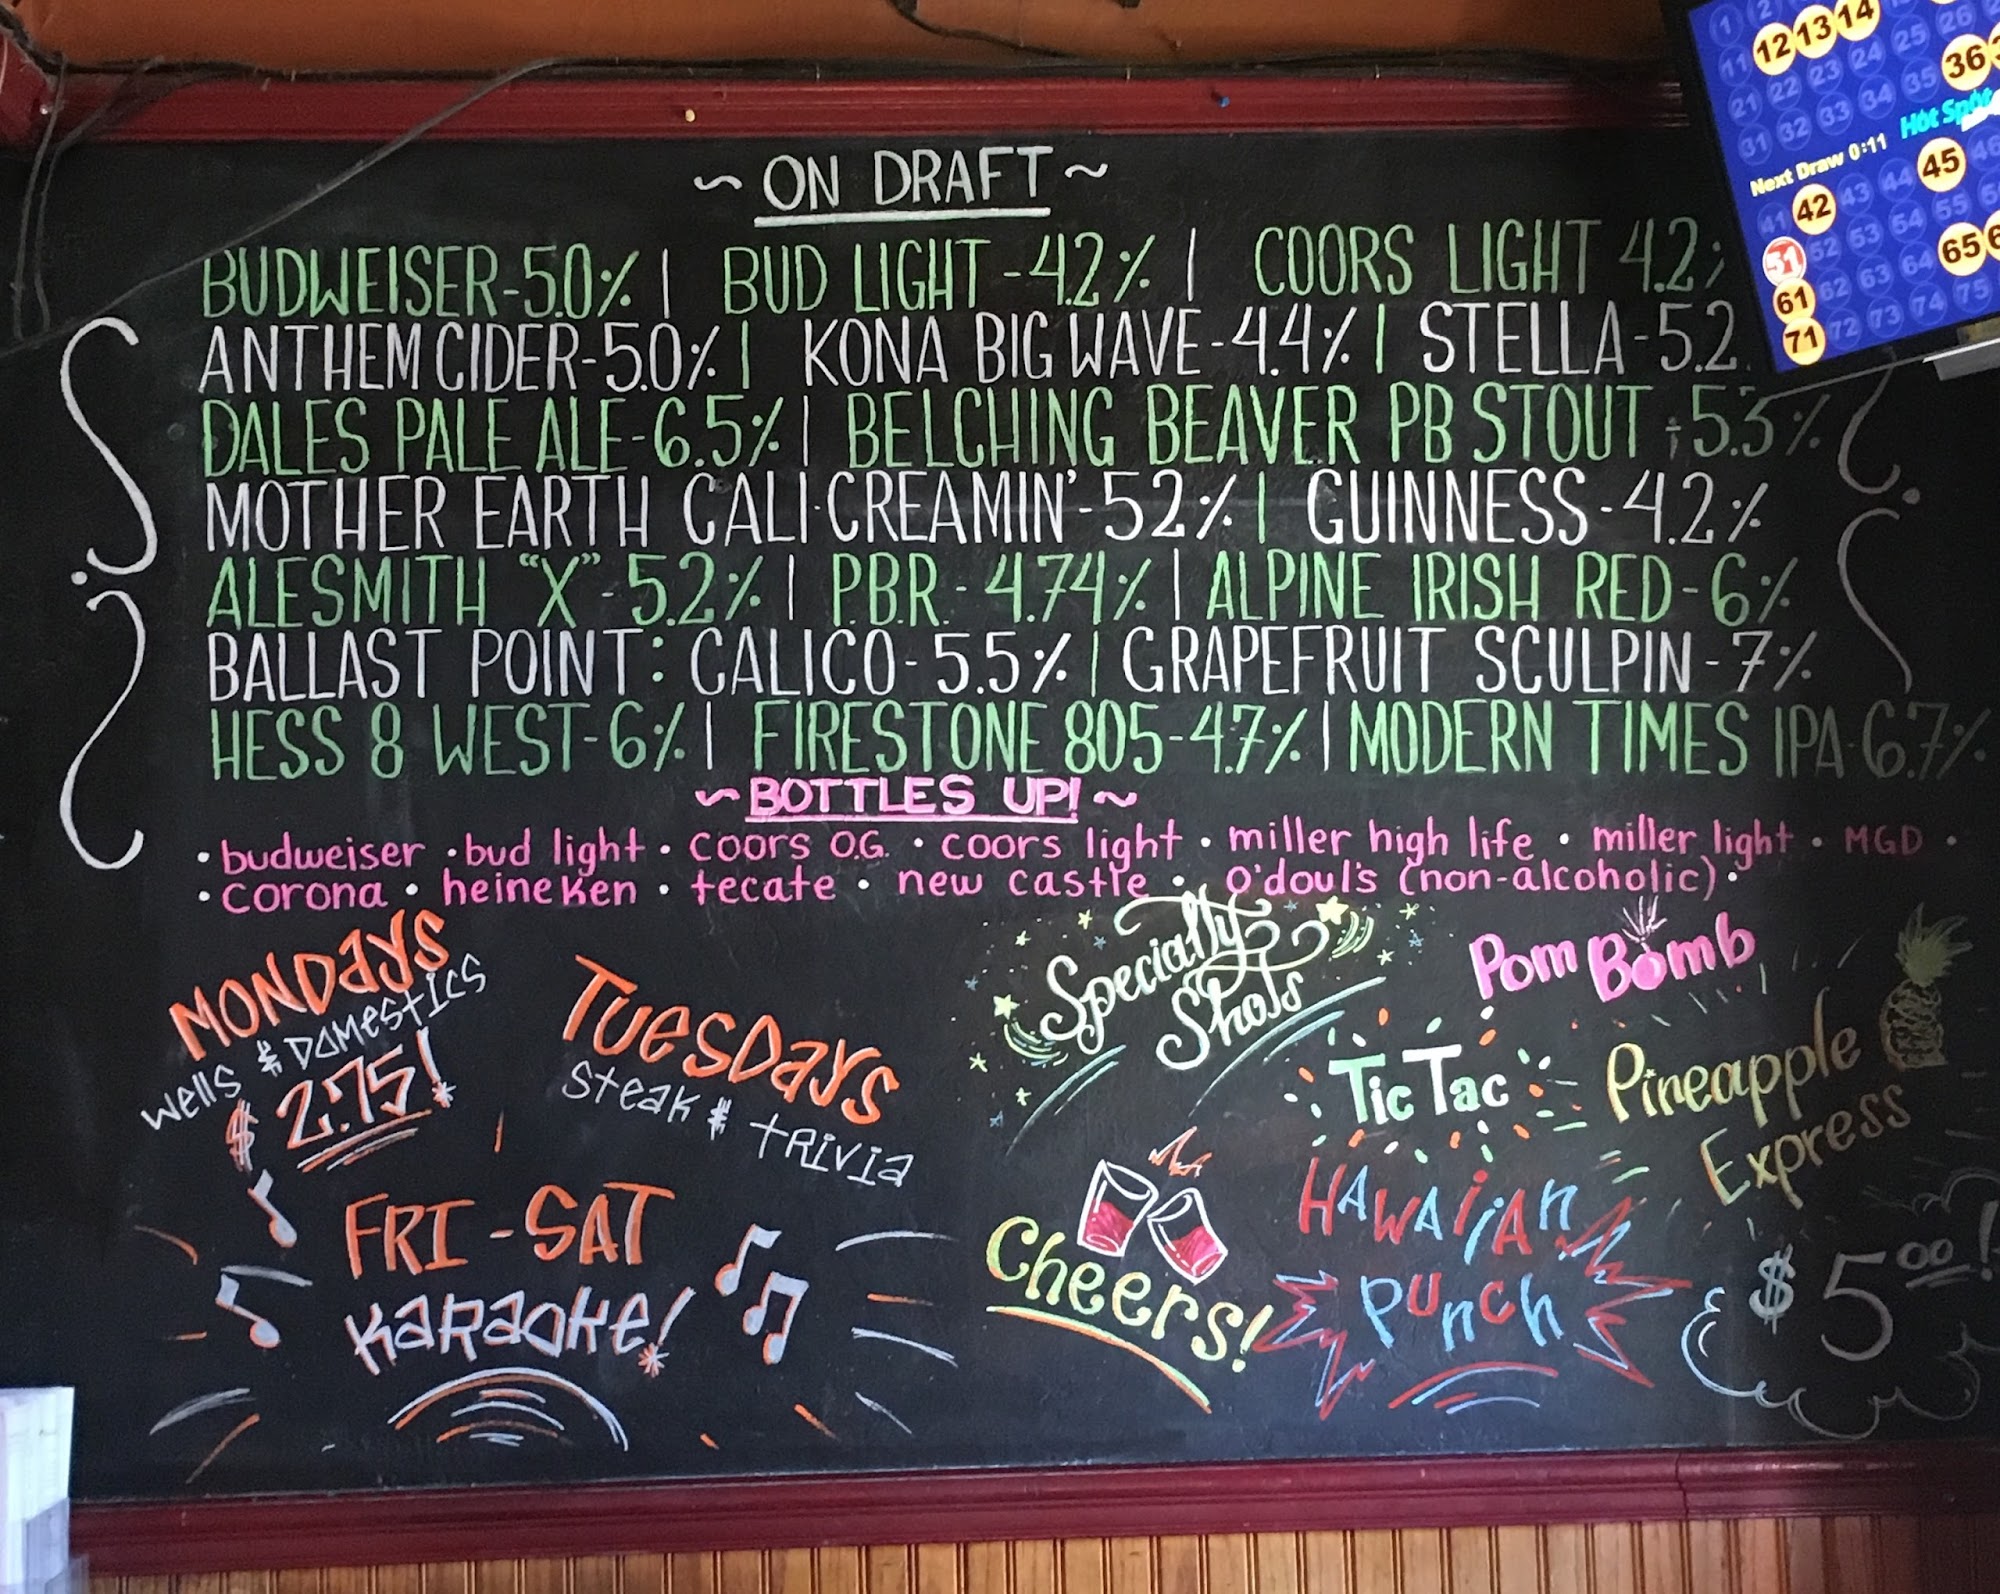 ~ ON DRAFT ~
BUDWEISER-5.0% | BUD LIGHT-4.2% | COORS LIGHT 4.2%
ANTHEM CIDER-5.0% | KONA BIG WAVE-4.4% | STELLA-5.2
DALES PALE ALE-6.5% | BELCHING BEAVER PB STOUT-5.3%
MOTHER EARTH CALI·CREAMIN'-5.2% | GUINNESS-4.2%
ALESMITH "X"-5.2% | P.B.R.-4.74% | ALPINE IRISH RED-6%
BALLAST POINT: CALICO-5.5% | GRAPEFRUIT SCULPIN-7%
HESS 8 WEST-6% | FIRESTONE 805-4.7% | MODERN TIMES IPA-6.7%
~ BOTTLES UP! ~
· budweiser · bud light · coors O.G. · coors light · miller high life · miller light · MGD ·
· corona · heineken · tecate · new castle · o'doul's (non-alcoholic) ·
MONDAYS
wells & DOMESTICS
$2.75!
TUESDAYS
Steak & triVia
FRI-SAT
KARAOKE!
Specialty
Shots
Cheers!
Pom Bomb
Tic Tac
Pineapple
Express
HAWAiiAn
PUnch
$5.00!
1 2
12 13 14
11
21 22 23 24 25 26
31 32 33 34 35 36
Next Draw 0:11 Hot Spot
41 42 43 44 45 46
51 52 53 54 55
61 62 63 64 65
71 72 73 74 75